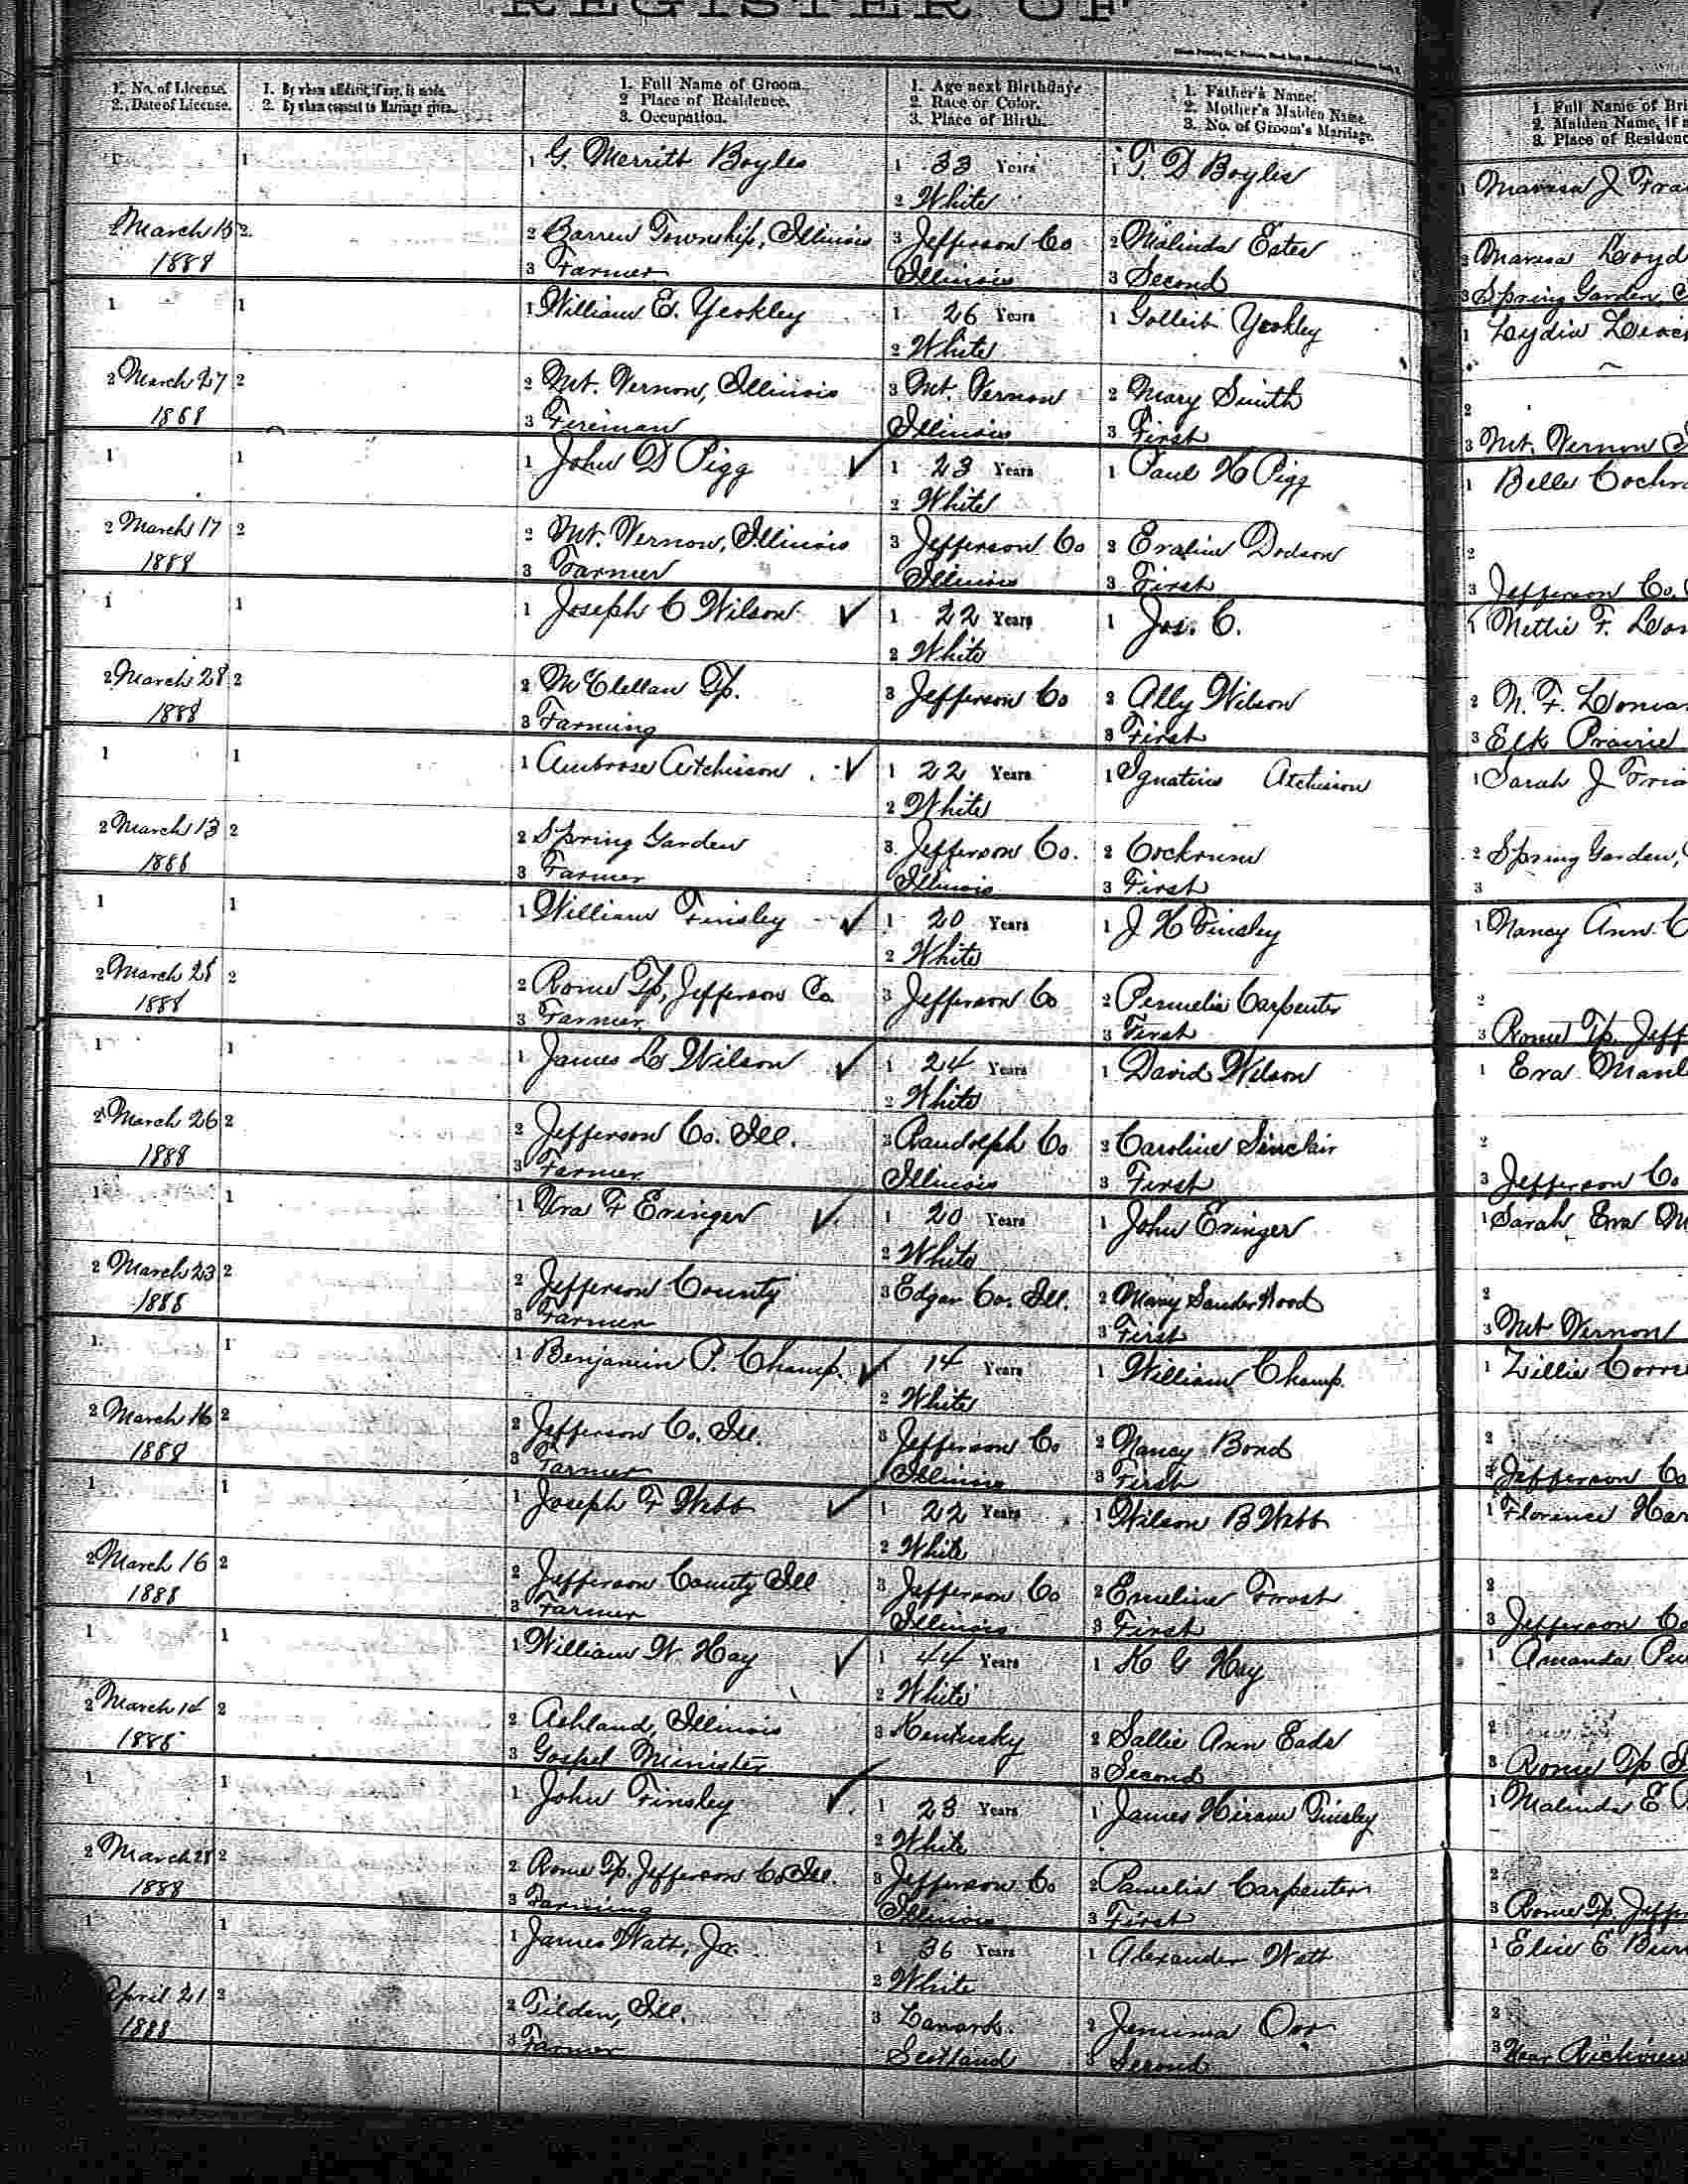 REGISTER OF
1. No. of License.
2. Date of License.
1. By whom affidavit, if any, is made.
2. By whom consent to Marriage given.
1. Full Name of Groom.
2 Place of Residence.
3. Occupation.
1. Age next Birthday.
2. Race or Color.
3. Place of Birth.
1. Father's Name.
2. Mother's Maiden Name.
3. No. of Groom's Marriage.
1. Full Name of Bri
2. Maiden Name, if a
3. Place of Residenc
1 1 1 G. Merritt Boyles 1 33 Years 1 T. D Boyles 1
2 White
2 March 15 2 2 Barren Township, Illinois 3 Jefferson Co 2 Malinda Estes 2
1888 3 Farmer Illinois 3 Second 3 Spring Garden
1 1 1 William E. Yeokley 1 26 Years 1 Yeokley 1 Lydia
2 White
2 March 27 2 2 Mt. Vernon, Illinois 3 Mt. Vernon 2 Mary Smith 2
1888 3 Fireman Illinois 3 First 3 Mt. Vernon
1 1 1 John D Pigg 1 23 Years 1 Paul H Pigg 1 Belle Cochra
2 White
2 March 17 2 2 Mt. Vernon, Illinois 3 Jefferson Co 2 Dodson 2
1888 3 Farmer Illinois 3 First 3 Jefferson Co.
1 1 1 Joseph C Wilson 1 22 Years 1 Jos. C. 1 Nettie F.
2 White
2 March 28 2 2 McClellan Tp. 3 Jefferson Co 2 Ally Wilson 2 N. F.
1888 3 Farming 3 First 3 Elk Prairie
1 1 1 Ambrose Atchisson 1 22 Years 1 Ignatius Atchisson 1 Sarah J
2 White
2 March 13 2 2 Spring Garden 3 Jefferson Co. 2 Cockrum 2 Spring Garden,
1888 3 Farmer Illinois 3 First 3
1 1 1 William Tinsley 1 20 Years 1 J H Tinsley 1 Nancy Ann C
2 White
2 March 28 2 2 Rome Tp, Jefferson Co. 3 Jefferson Co 2 Permelia Carpenter 2
1888 3 Farmer 3 First 3 Rome Tp. Jeff
1 1 1 James L Wilson 1 24 Years 1 David Wilson 1 Eva
2 White
2 March 26 2 2 Jefferson Co. Ill. 3 Randolph Co 2 Caroline Sinclair 2
1888 3 Farmer Illinois 3 First 3 Jefferson Co
1 1 1 Ura F Eringer 1 20 Years 1 John Eringer 1 Sarah Eva M
2 White
2 March 23 2 2 Jefferson County 3 Edgar Co. Ill. 2 Mary 2
1888 3 Farmer 3 First 3 Mt Vernon
1 1 1 Benjamin P. Champ. 1 14 Years 1 William Champ. 1 Zillie
2 White
2 March 16 2 2 Jefferson Co. Ill. 3 Jefferson Co 2 Nancy Bond 2
1888 3 Farmer Illinois 3 First 3 Jefferson Co
1 1 1 Joseph F Webb 1 22 Years 1 Wilson B Webb 1 Florence Har
2 White
2 March 16 2 2 Jefferson County Ill 3 Jefferson Co 2 Emeline Frost 2
1888 3 Farmer Illinois 3 First 3 Jefferson Co
1 1 1 William W. Hay 1 44 Years 1 K G Hay 1 Amanda
2 White
2 March 14 2 2 Ashland, Illinois 3 Kentucky 2 Sallie Ann Eads 2
1888 3 Gospel Minister 3 Second 3 Rome Tp
1 1 1 John Tinsley 1 23 Years 1 James Hiram Tinsley 1 Malinda E
2 White
2 March 28 2 2 Rome Tp. Jefferson Co Ill. 3 Jefferson Co 2 Pamelia Carpenter 2
1888 3 Farming Illinois 3 First 3 Rome Tp. Jeffer
1 1 1 James Watt, Jr. 1 36 Years 1 Alexander Watt 1 E
2 White
April 21 2 2 Tilden, Ill. 3 Lanark 2 Jemima Orr 2
1888 3 Farmer Scotland 3 Second 3 Near Richview